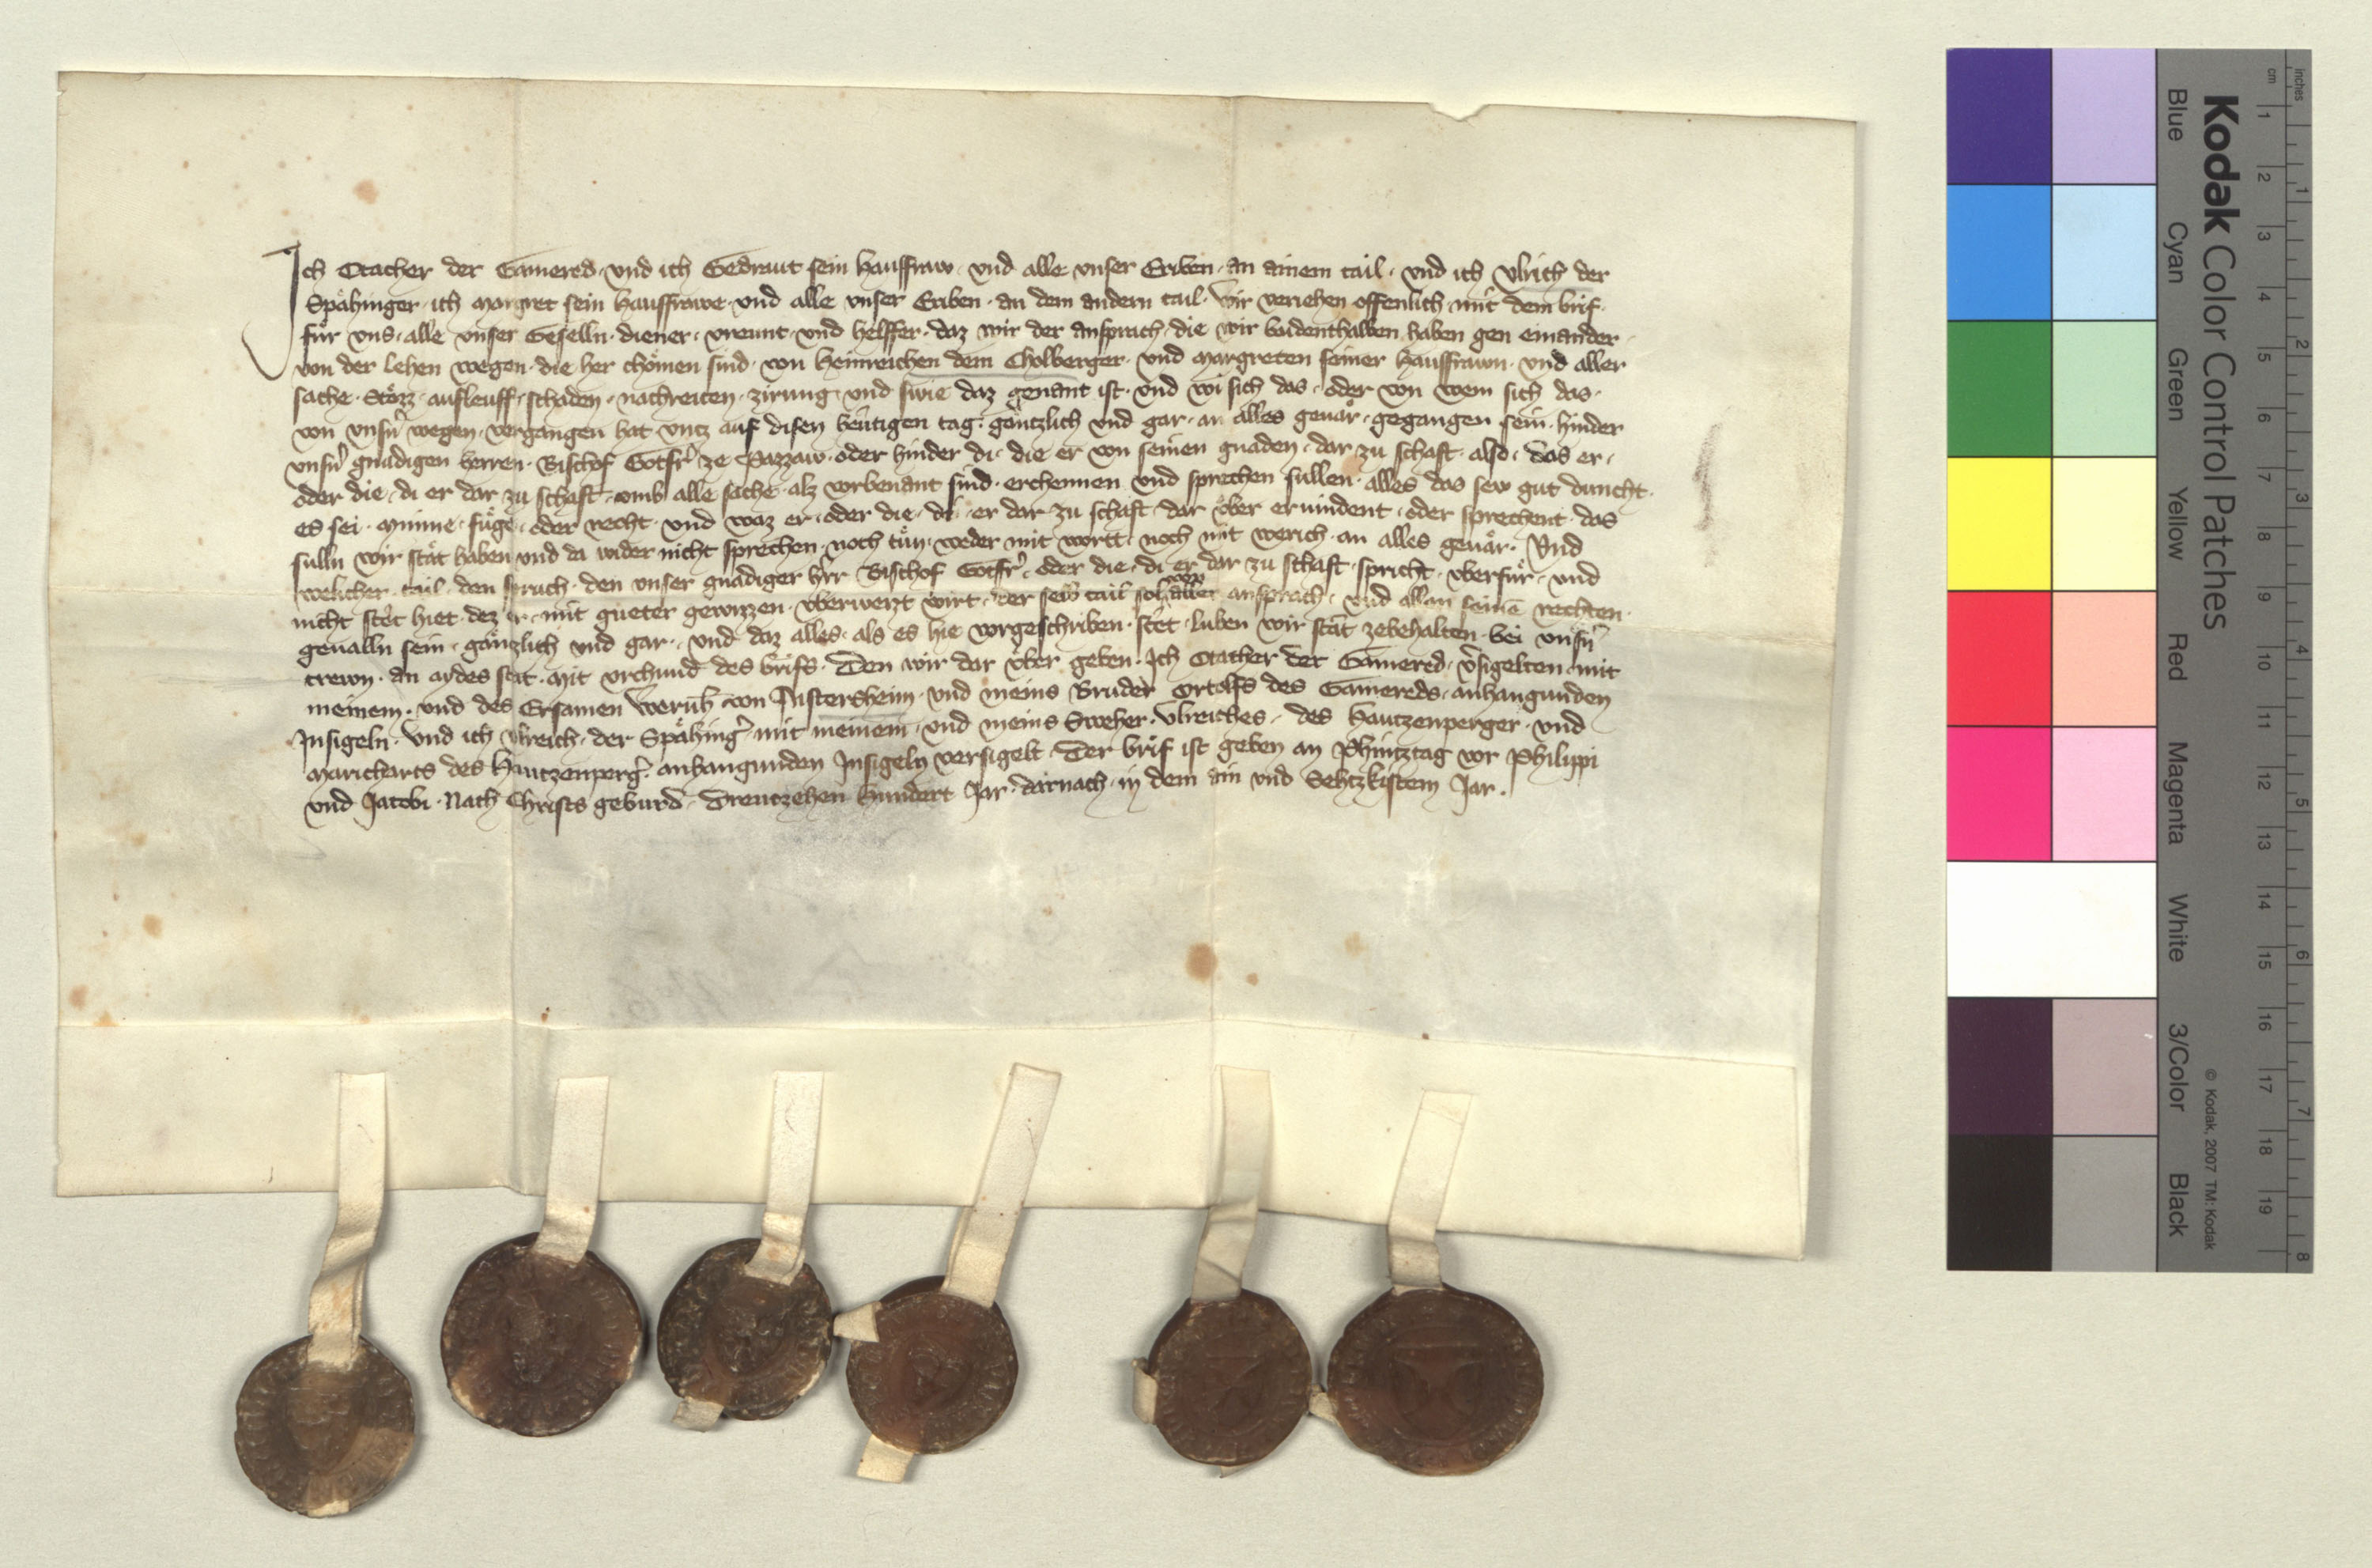 Ich Otacher der Gamered · vnd ich Gedraut sein hausfraw · vnd alle vnser Eriben · an ainem tail · vnd ich Vlrich der
Spaͤhinger · ich margret sein hausfrawe · vnd alle vnser Eriben · an dem andern tail · Wir veriehen offenlich · mit dem brif ·
fuͤr vns · alle vnser Geselln · diener · vreunt · vnd helffer · daz wir der ansprach · die wir baidenthalben haben gen einander ·
von der lehen wegen · die her choͤmen sind · von heinreichen dem Cholberger · vnd margreten seiner hausfrawn · vnd aller
sache · Stoͤzz · aufleuff · schaden · nachreiten · zirung · vnd swie daz genant ist · vnd wi sich das · oder von wem sich das ·
von vnsn̄ wegen · vergangen hat · vntz auf disen heutigen tag · gaͤntzlich vnd gar · an alles geuaͤr · gegangen sein · hinder
vnsn̄ gnadigen herren · Bischof Gotfr̄ ze Pazzaw · oder hinder di · die er von seinen gnaden · dar zu schaft · also · das er ·
oder die · di er dar zu schaft · vmb alle sache · alz vorbenant sind · erchennen vnd sprechen sullen · alles das sew gut duncht ·
es sei · minne · fuͤge · oder recht · vnd waz er · oder die · di · er dar zu schaft · dar vͤber eruindent · oder sprechent · das
sulln wir staͤt haben vnd da wider nicht sprechen · noch tuͤn · weder mit wortt · noch mit werich · an alles geuaͤr · Vnd
welicher tail · den spruch · den vnser gnadiger h̄rr Bischof Gotfr̄ · oder die · di er dar zu schaft · spricht · vberfuͤr · vnd
nicht stet hiet · dez er · mit gueter gewizzen · vberwerzt wirt · der selb tail sol von aller ansprach · vnd allan seinē rechten ·
geualln sein · gaͤnzlich vnd gar · vnd daz alles · als es hie vorgeschriben · stet · luben wir staͤt zebehalten · bei vnsn̄
trewn · an aydes stat · Mit vrchund des brifs · Den wir dar vber geben · Ich Otacher der Gamered · v̄sigelten · mit
meinem · vnd des Ersamen Wernh̄ von Instersheim · vnd meins Bruder Ortolfs des Gamereds · anhangunden
Insigeln · Vnd ich vlreich · der Spaͤhinḡ · mit meinem · vnd meins Sweher · Vlreiches · des hautzenperger · vnd
Maricharts des Hautzenperḡ · anhangunden Insigeln versigelt · Der brif ist geben an Phintztag vor Philippi
vnd Jacobi · Nach Christs geburd · Dreutzehen hundert Jar · darnach · in dem ain vnd Sehtzkistem Jar ·
Kodak Color Control Patches
Blue Cyan Green Yellow Red Magenta White 3/Color Black
© Kodak, 2007 TM: Kodak
inches 1 2 3 4 5 6 7 8
cm 1 2 3 4 5 6 7 8 9 10 11 12 13 14 15 16 17 18 19